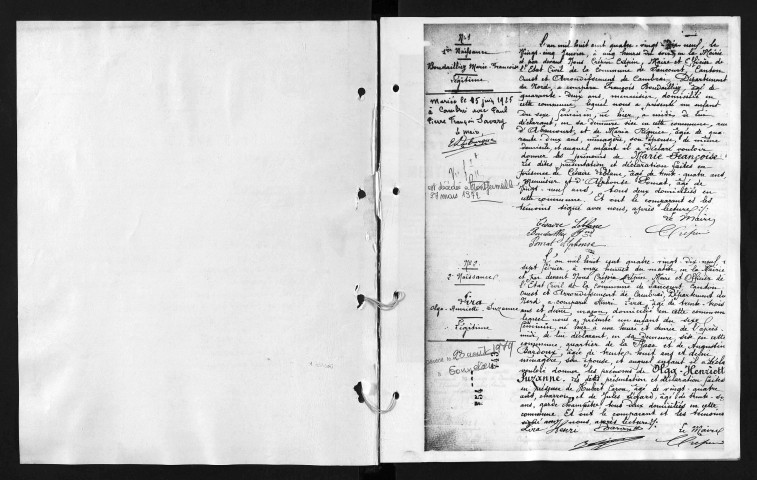 N°1
Naissance
Boudailliez Marie-Françoise
Légitime
Mariée le 25 juin 1925
à Cambrai avec Paul
Pierre François Savary
Le Maire
est décédée à Montfermeil
27 mars 1971
L'an mil huit cent quatre-vingt-dix-neuf, le
vingt-cinq Janvier, à cinq heures du soir en la Mairie
et par devant Nous Crépin Edgin, Maire et Officier de
l'Etat Civil de la Commune de Sancourt, Canton
Ouest et Arrondissement de Cambrai, Département
du Nord, a comparu François Boudailliez, âgé de
quarante-deux ans, menuisier, domicilié en
cette commune, lequel nous a présenté un enfant
du sexe féminin, né hier, à midi, de lui
déclarant, en sa demeure sise en cette commune, rue
d'Abancourt, et de Maria Piquier, âgée de qua-
rante-deux ans, ménagère, son épouse, de même
domicile, et auquel enfant il a déclaré vouloir
donner les prénoms de Marie-Françoise.
Les dites présentation et déclaration faites en
présence de Césaire Leblanc, âgé de trente-quatre ans,
et d'Alphonse, âgé de
vingt-neuf ans, tous deux domiciliés en
cette commune. Et ont le comparant et les
témoins signé avec nous, après lecture
Le Maire
Césaire Leblanc
Boudailliez
Alphonse
Crépin
N°2
2e Naissance
Vira
Olga-Henriette Suzanne
Légitime
1979
F 54
743
L'an mil huit cent quatre-vingt-dix-neuf,
sept février, à onze heures du matin, en la Mairie
et par devant Nous Crépin, Maire et Officier de
l'Etat Civil de la Commune de Sancourt, Canton
Ouest et Arrondissement de Cambrai, Département du
Nord a comparu Henri Vira, âgé de trente-trois
ans et demi, maçon, domicilié en cette commune
lequel nous a présenté un enfant du sexe
féminin, né hier à une heure et demie de l'après-
midi, de lui déclarant, en sa demeure sise en cette
commune, quartier de la Place et de Augustine
Bardoux, âgée de trente-huit ans et demi
ménagère, son épouse, et auquel enfant il a déclaré
vouloir donner les prénoms de Olga-Henriett
Suzanne. Les dites présentation et déclaration faites
en présence de Hubert, âgé de vingt-quatre
ans, et de Jules, âgé de trente-
ans, garde champêtre, tous deux domiciliés en cette
commune. Et ont le comparant et les témoins
signé avec nous, après lecture
Vira Henri
Le Maire
Crépin